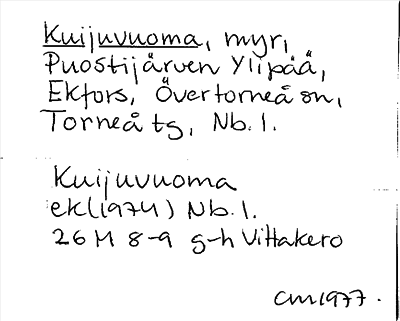 Kuijuvuoma, myr,
Puostijärven Ylipää,
Ekfors, Övertorneå sn,
Torneå tg, Nb. l.
Kuijuvuoma
ek (1974) Nb. l.
26 M 8-9 g-h Vittakero
CM 1977.